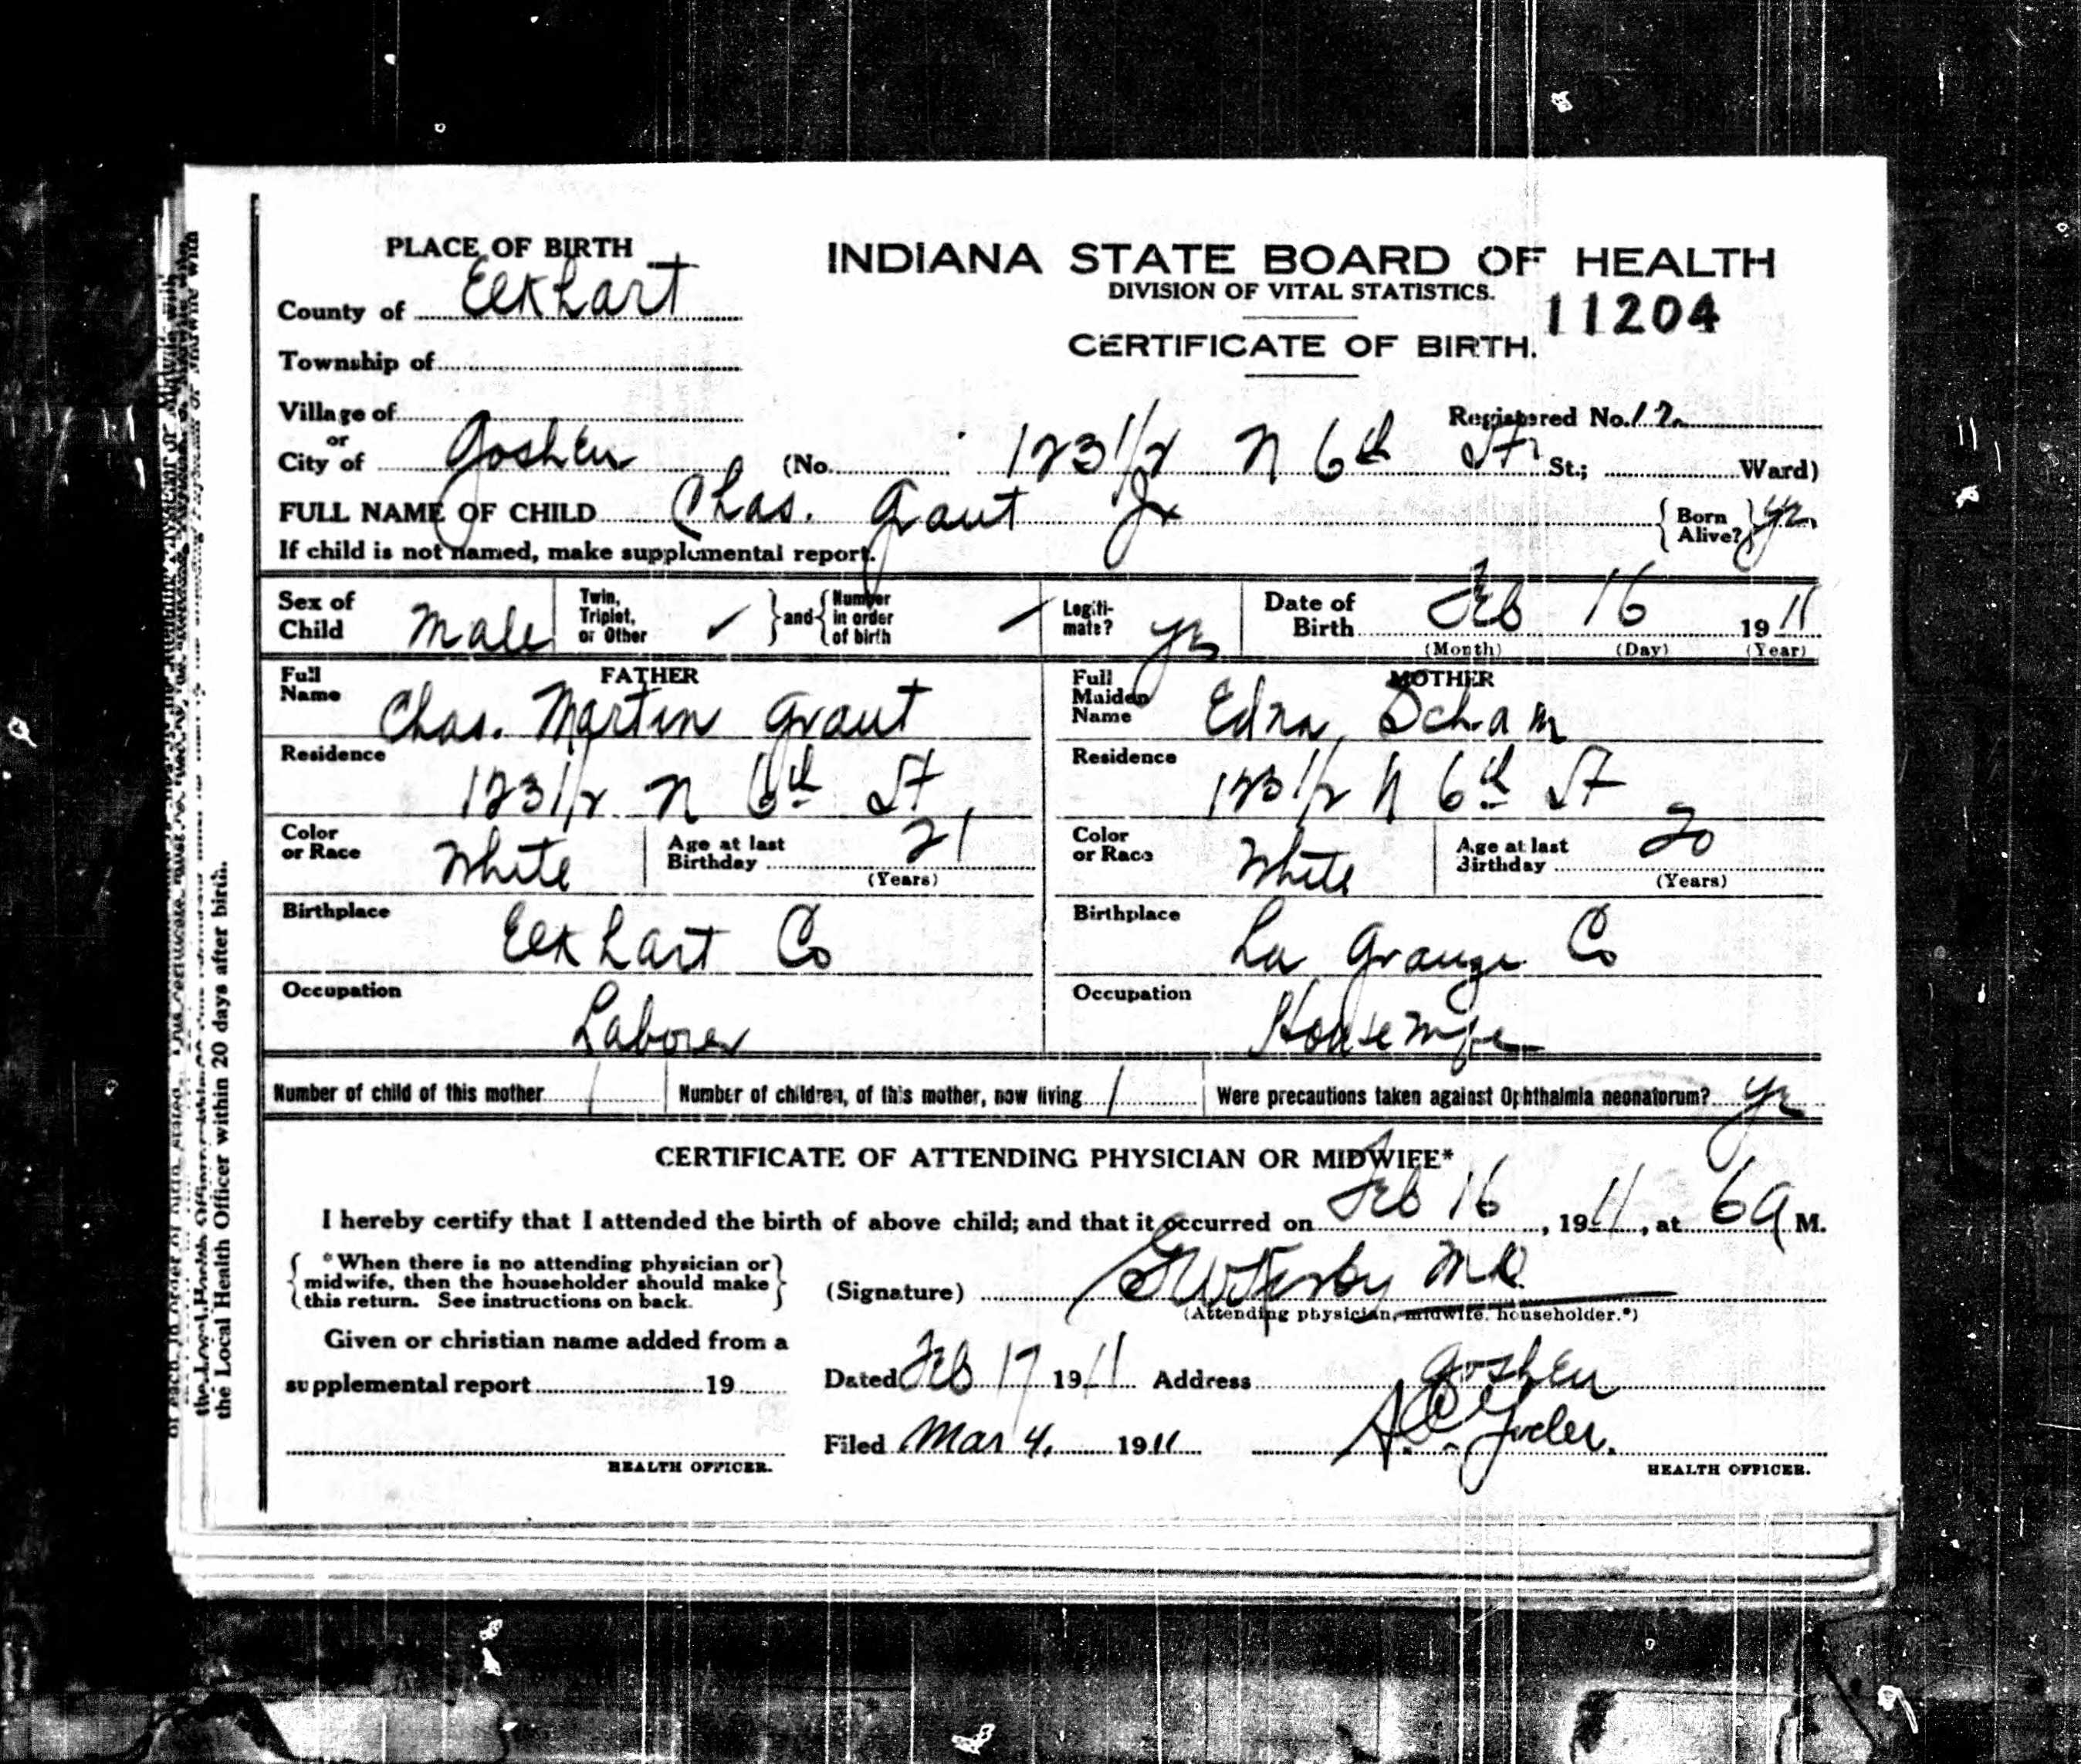 PLACE OF BIRTH
INDIANA STATE BOARD OF HEALTH
DIVISION OF VITAL STATISTICS.
11204
CERTIFICATE OF BIRTH.
County of Elkhart
Township of
Village of
or
City of Goshen (No. 123 1/2 N 6th St. St.; Ward)
Registered No. 12
FULL NAME OF CHILD Chas. Grant Jr
Born Alive? yes
If child is not named, make supplemental report.
Sex of Child Male
Twin, Triplet, or Other ✓ and Number in order of birth
Legitimate? yes
Date of Birth Feb 16 1911
(Month) (Day) (Year)
FATHER
Full Name Chas. Martin Grant
Residence 123 1/2 N 6th St
Color or Race White
Age at last Birthday 21
(Years)
Birthplace Elkhart Co
Occupation Laborer
MOTHER
Full Maiden Name Edna Scham
Residence 123 1/2 N 6th St
Color or Race White
Age at last Birthday 20
(Years)
Birthplace La Grange Co
Occupation Housewife
Number of child of this mother 1
Number of children, of this mother, now living 1
Were precautions taken against Ophthalmia neonatorum? yes
CERTIFICATE OF ATTENDING PHYSICIAN OR MIDWIFE*
I hereby certify that I attended the birth of above child; and that it occurred on Feb 16, 1911, at 6 A M.
*When there is no attending physician or
midwife, then the householder should make
this return. See instructions on back.
(Signature) M.D.
(Attending physician, midwife, householder.*)
Given or christian name added from a
supplemental report 19
Dated Feb 17 1911 Address Goshen
Filed Mar 4, 1911 A. C. Yoder.
HEALTH OFFICER.
HEALTH OFFICER.
the Local Health Officer within 20 days after birth.